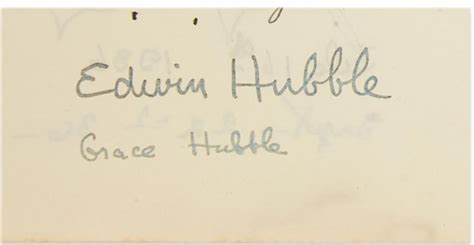 Edwin Hubble
Grace Hubble